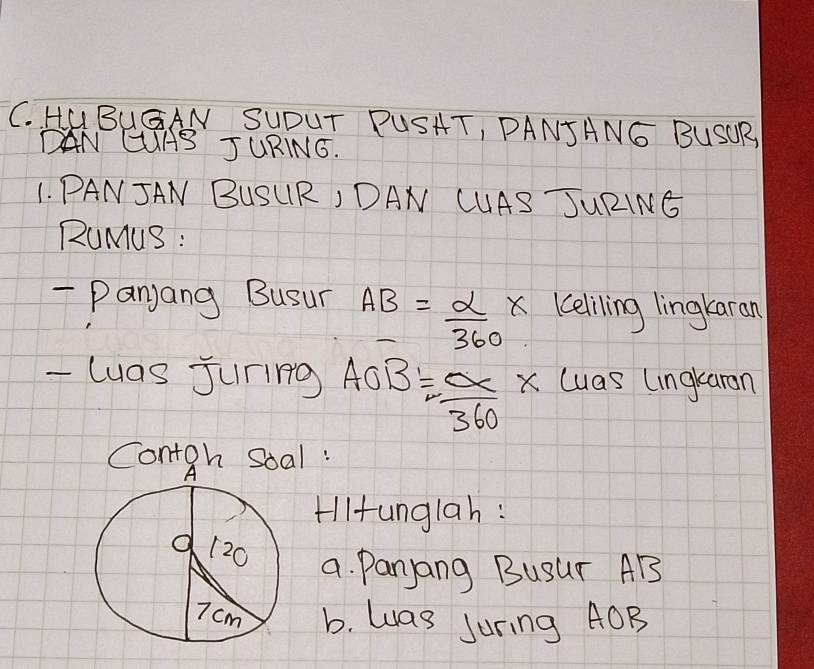 C. HUBUGAN SUDUT PUSAT, PANJANG BUSUR,
DAN LUAS JURING.
1. PANJAN BUSUR, DAN LUAS JURING
RUMUS:
- Panjang Busur AB = α/360 x Keliling lingkaran
- Luas Juring AOB = α/360 x Luas Lingkaran
Contoh Soal:
A
Hitunglah:
O 120
a. Panjang Busur AB
7 cm
b. Luas Juring AOB